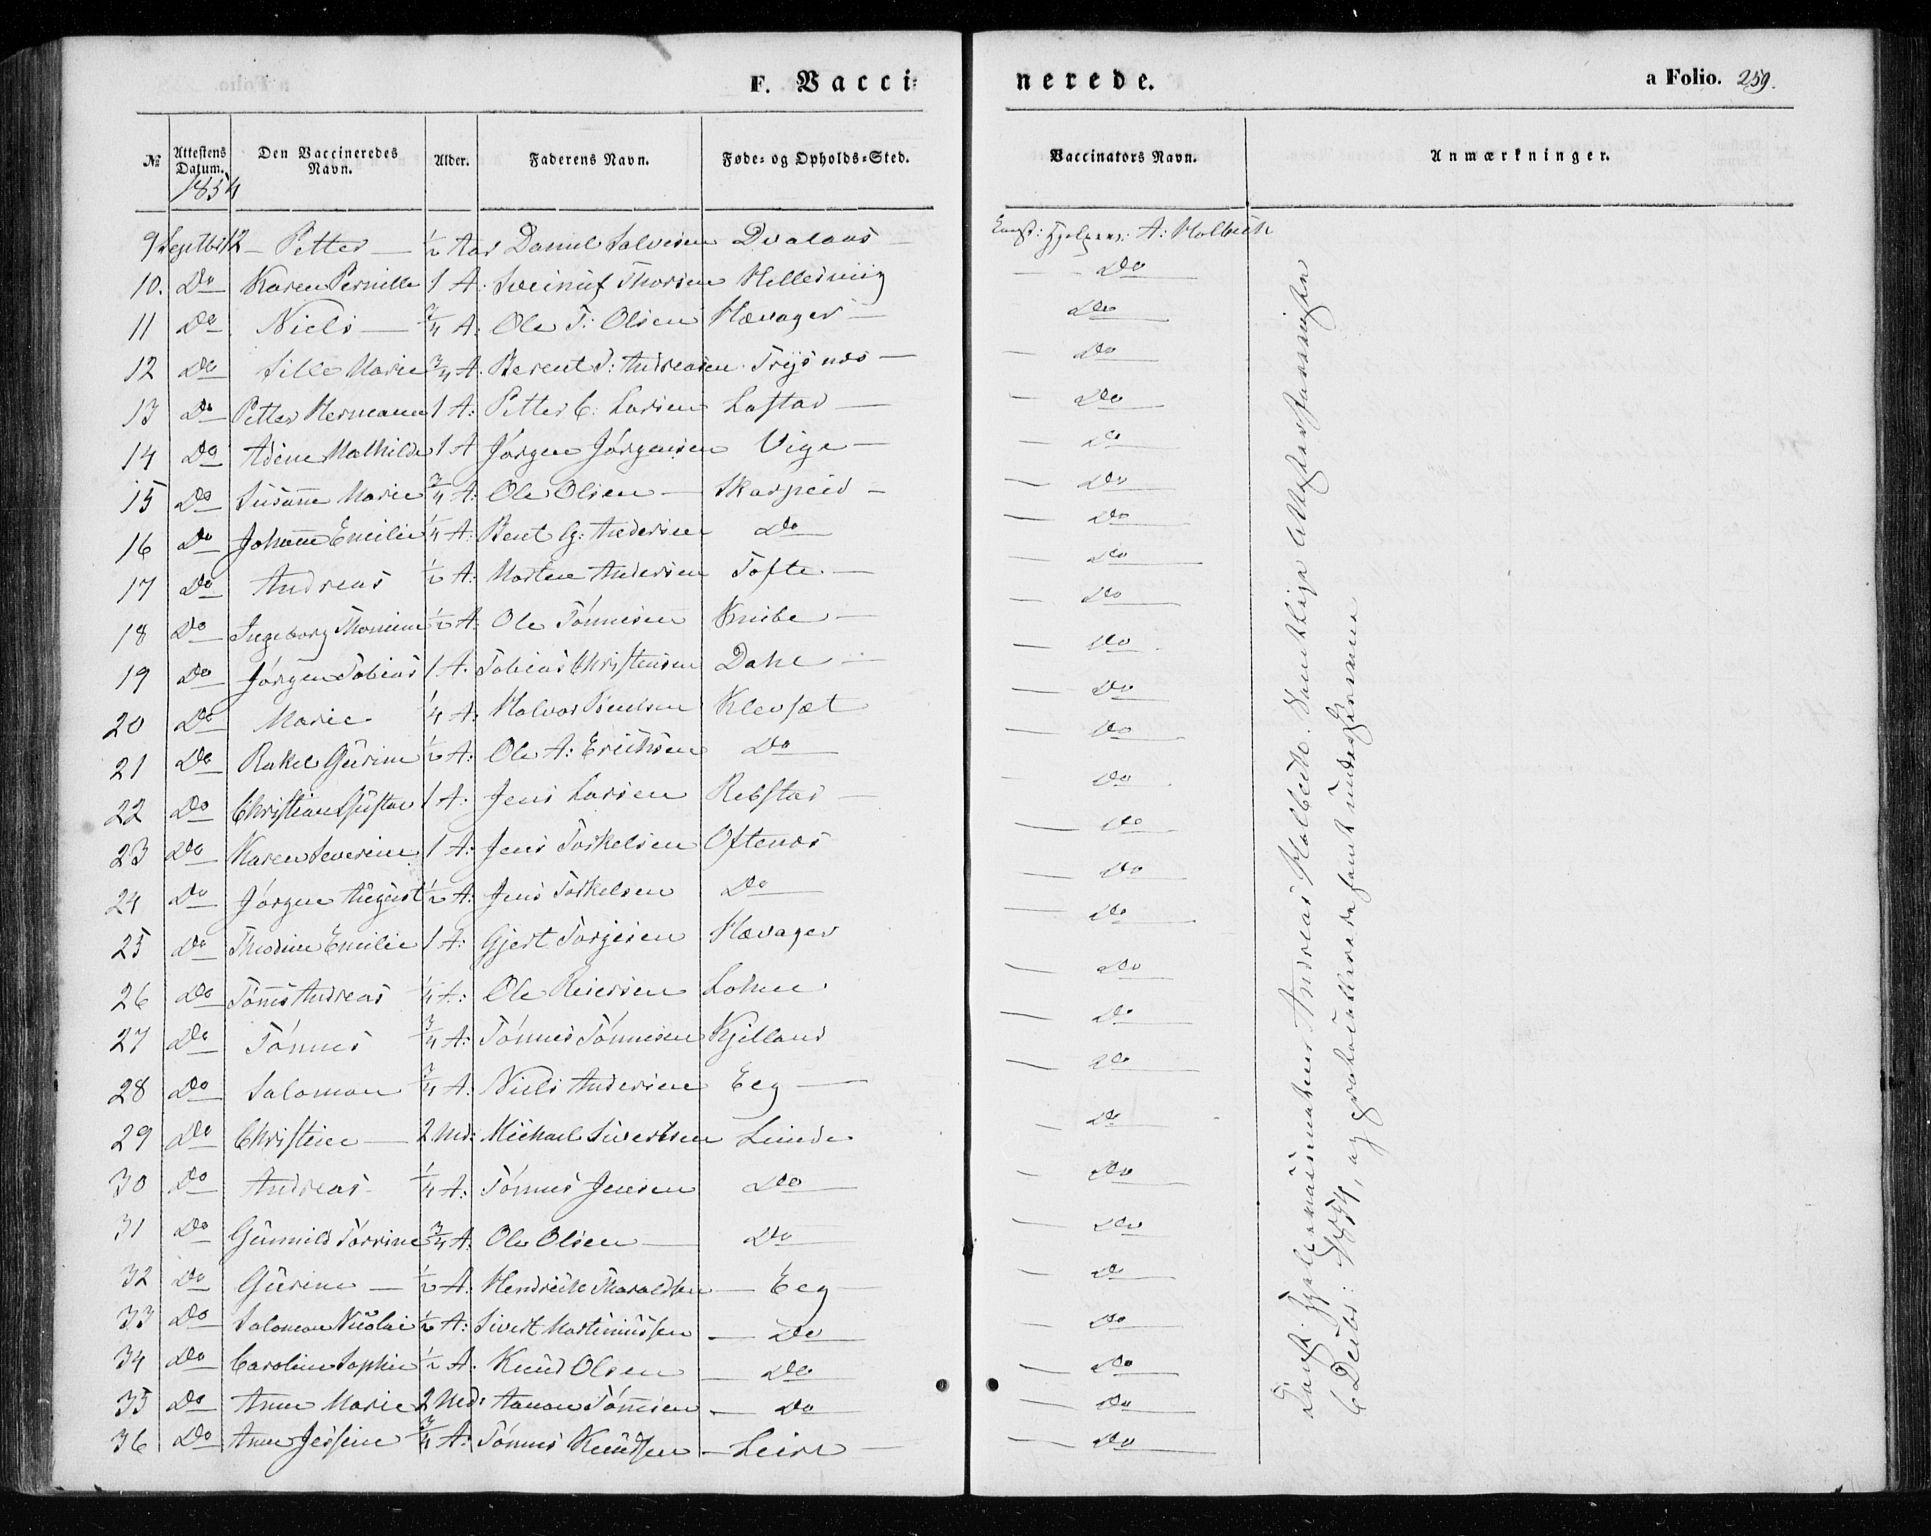 F. Vacci-
nerede.
a Folio. 259.
№ Attestens Datum. Den Vaccineredes Navn. Alder. Faderens Navn. Føde- og Opholds-Sted. Vaccinators Navn. Anmærkninger.
1854
9 Septbr 12 Petter ½ Aar Daniel Salvesen Dvalaas A: Holbeck
10. Do Karen Pernille 1 A. Thorsen Helleviig Do
11 Do Niels ¾ A: Ole T: Olsen Høvager Do
12 Do Sille Marie ¾ A. Berent S: Andreasen Trysnes Do
13 Do Petter Hermann 1 A: Petter C: Larsen Lastad Do
14 Do Adene Mathilde 1 A Jörgen Jörgensen Vige Do
15 Do Susanne Marie ¾ A: Ole Olsen Skarpeid Do
16 Do Johanne Emilie ¼ A: Bent G: Andersen Do Do
17 Do Andreas ½ A: Morten Andersen Tofte Do
18 Do Ingeborg Thomine ½ A: Ole Tönnesen Knibe Do
19 Do Jörgen Tobias 1 A. Tobias Christensen Dahe Do
20 Do Marie ¼ A: Halvor Klevset Do
21 Do Rakel Gurine ½ A: Ole A: Erichsen Do Do
22 Do Christian Gustav 1 A: Jens Larsen Rebstad Do
23 Do Karen Severine 1 A: Jens Torkelsen Oftenes Do
24 Do Jörgen August ½ A: Jens Torkelsen Do Do
25 Do Theodine Emilie 1 A: Gjert Torgesen Høvager Do
26 Do Tönnes Andreas ¼ A: Ole Reiersen Lohne Do
27 Do Tönnes ¾ A: Tönnes Tönnesen Kjelland Do
28 Do Salomon ¾ A: Niels Andersen Eeg Do
29 Do Christine 2 Md: Michael Sivertsen Lunde Do
30 Do Andreas ¼ A: Tönnes Jensen Do Do
31 Do Gunnild Torrine ¾ A: Ole Olsen Do Do
32 Do Gurine ½ A: Hendrick Haraldsen Eeg Do
33 Do Salomon Nicolai ½ A: Sivert Martinussen Do Do
34 Do Caroline Sophie ½ A. Knud Olsen Do Do
35 Do Anne Marie 2 Md: Aanon Tönnesen Do Do
36 Do Anne Jessine ¾ A: Tönnes Knudsen Leire Do
Hjelpevaccinateur Andreas Holbeck. Samtlige
6 Decbr: 1854, og